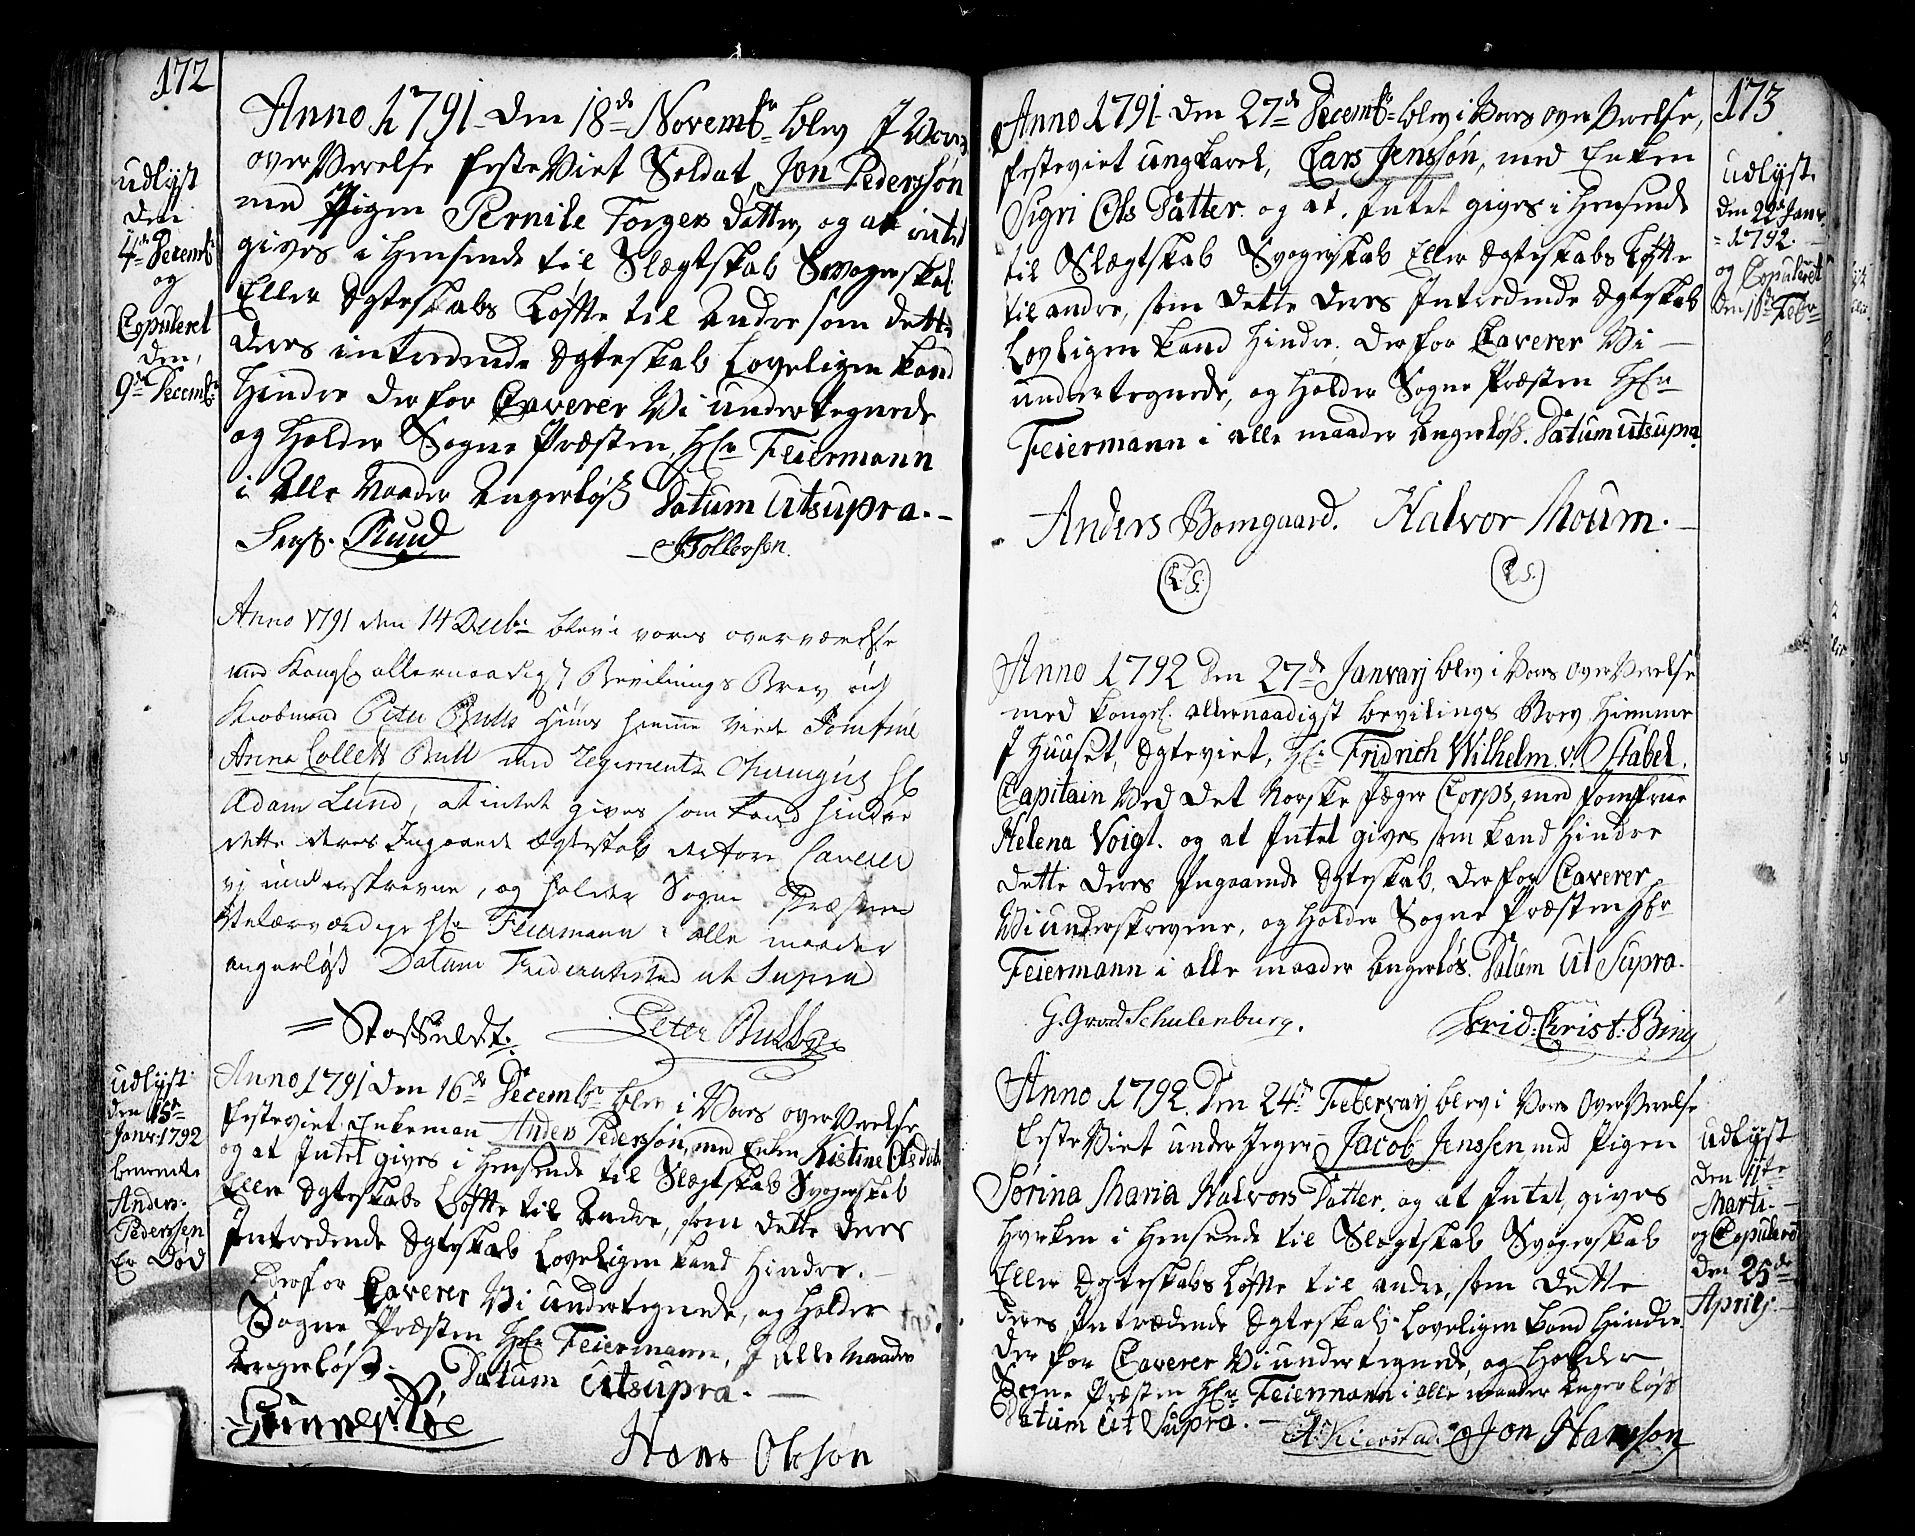 172
Anno 1791. den 18de Novembr blev I Vores
over Værelse festeViet Soldat Jon Pedersson
med Pigen Pernile Torgers datter, og at intet
gives i Hensende til Slægtskab Svogerskab
Eller Egteskabs Løfte til Andre som dette
deres intredende Egteskab Loveligen kand
hindre derfor Caverer Vi undertegnede
og holder Sogne Præsten, Hr Feiermann
i Alle Maader Angerløs Datum Utsupra.
Ruud
JTollersen.
udlyst
den
4de Decembr
og
Copuleret
den,
9de Decembr
Anno 1791 den 14 Decbr blev i vores overværelse
med Kongl allernaadigst Bevilnings Brev udi
Kiøbmand Peter Bulls Huus hiemme viede Jomfrue
Anna Collett Bull med Regiments Chirurgus Hr
Adam Lund, at intet gives som kand hindre
dette deres Indgaaende Egteskab derfore Caverer
vj underskrevne, og holder Sogne Præsten
Velærværdige Hr Feiermann i alle maader
angerløs Datum Friderichsted ut Supra
Peter Bull
udlyst
den 15de
Janr: 1792
bemente
Anders
Pederssen
Er Død
Anno 1791 den 16de Decembr blev i Vores over Værelse
festeviet Enkeman Anders Pedersson, med Enken Kistine Olsdatr
og at Intet gives i Hensende til Slægtskab Svogerskab
Eller Egteskabs Løfte til Andre, som dette deres
Intredende Egteskab Loveligen kand Hindre.
derfor Caverer Vi undertegnede, og holder
Sogne Præsten Hr Feiermann, I alle Maader
Angerløs. Datum Utsupra.
Hans Olsson
173
Anno 1791. den 27de Decembr blev i Vores over Værelse,
festeviet ungkarel, Lars Jenssøn, med Enken
Sigri Ols Datter. og at Intet gives i Hensende
til Slægtskab Svogerskab Eller Egteskabs Løfte
til andre, som dette deres Intredende Egteskab
Lovligen kand Hindre, derfor Caverer Vi
undertegnede, og holder Sogne Præsten Hr
Feiermann i alle maader Angerløs. Datum Utsupra.
Anders Bomgaard. Halvor Moum.
(L.S.) (L.S.)
udlyst
den 22de Janr.
1792.
og Copuleret
den 16de Febr
Anno 1792 den 27de Janvarj blev i Vores over Værelse
med kongel. allernaadigst bevilings Brev, hiemme
I Huuset, Egteviet, Hr Fridrich Wilhelm v. Stabel.
Capitain Ved det Norske Jæger Corps, med Jomfrue
Helena Voigt. og at Intet gives som kand Hindre
dette deres Ingaaende Egteskab. derfor Caverer
Vi underskrevne, og holder Sogne Præsten Hr
Feiermann i alle maader Angerløs. Datum Ut Supra.
Schulenburg. Frid: Christ: Bing
Anno 1792. Den 24de Febervarj blev i Vores Over Værelse
festeViet under Jeger Jacob Jenssen med Pigen
Sørina Maria Halvors Datter. og at Intet gives
hverken i Hensende til Slægtskab Svogerskab
Eller Egteskabs Løfte til andre, som dette
deres Intrædende Egteskab Loveligen kand hindre
der for Caverer Vi undertegnede, og holder
Sogne Præsten Hr Feiermann i alle maader Angerløs
Datum Ut Supra. Jon Hansson
udlyst
den 11te
Marti.
og Copuleret
den 25de
Aprilj.